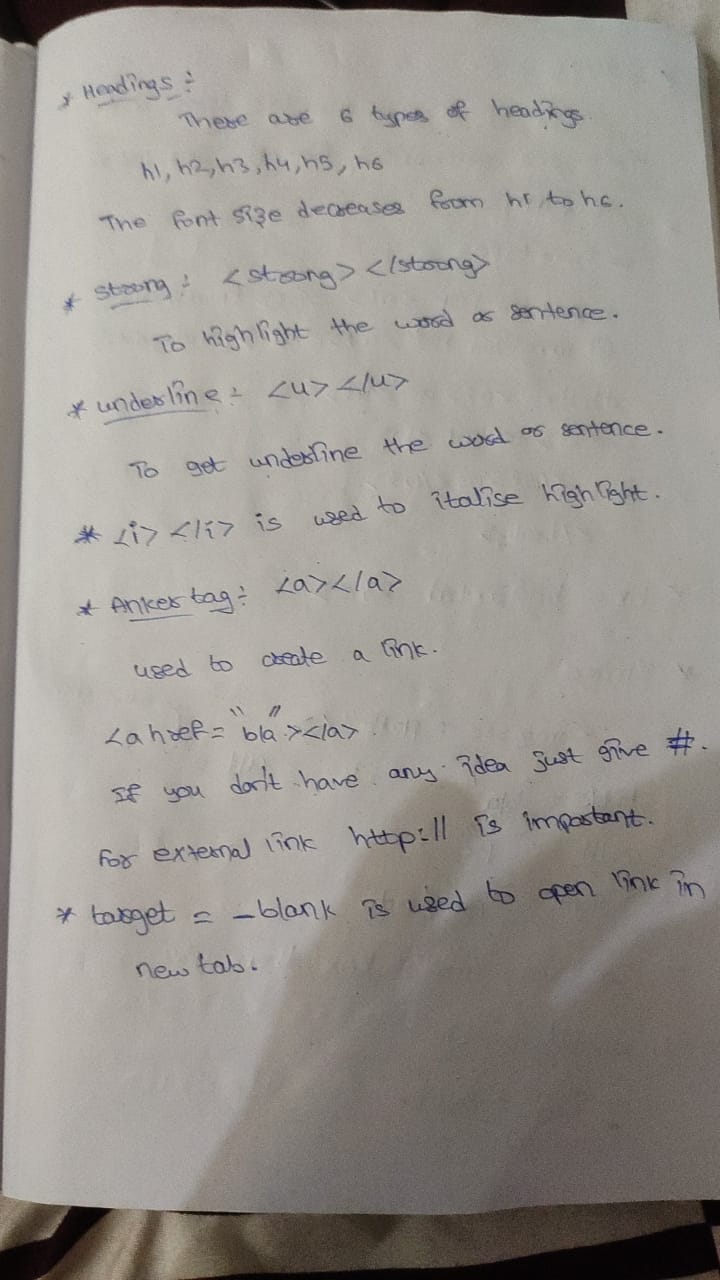 * Headings :-
There are 6 types of headings.
h1, h2, h3, h4, h5, h6
The font size decreases from h1 to h6.
* strong :- <strong> </strong>
To highlight the word or sentence.
* underline :- <u> </u>
To get underline the word or sentence.
* <i> </i> is used to italise highlight.
* Anker tag :- <a></a>
used to create a link.
<a href= "bla"></a>
If you don't have any idea just give #.
For external link http:// is important.
* target = _blank is used to open link in
new tab.